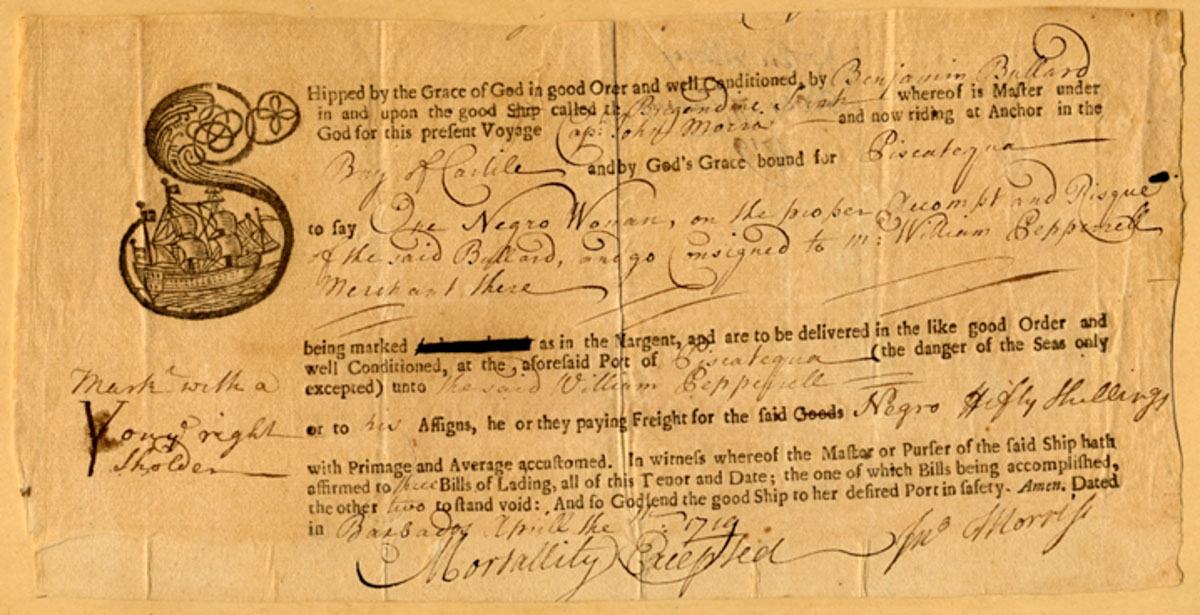 SHipped by the Grace of God in good Orer and well Conditioned, by Benjamin Bullard
in and upon the good Ship called the Bregandine Sarah whereof is Master under
God for this present Voyage Cap: John Morris and now riding at Anchor in the
Bay of Carlile and by God's Grace bound for Piscatequa
to say One Negro Woman, on the proper Accompt and Risque
of the said Bullard, and go Consigned to Mr: William Pepperrell
Merchant there
being marked as in the Margent, and are to be delivered in the like good Order and
well Conditioned, at the aforesaid Port of Piscatequa (the danger of the Seas only
excepted) unto the said William Pepperrell
Markt with a
Y on ye right
Sholder
or to his Assigns, he or they paying Freight for the said Goods Negro Fifty Shillings
with Primage and Average accustomed. In witness whereof the Master or Purser of the said Ship hath
affirmed to three Bills of Lading, all of this Tenor and Date; the one of which Bills being accomplished,
the other two to stand void: And so God send the good Ship to her desired Port in safety. Amen. Dated
in Barbados Aprill the 1719
Mortallity Excepted Jno Morriss